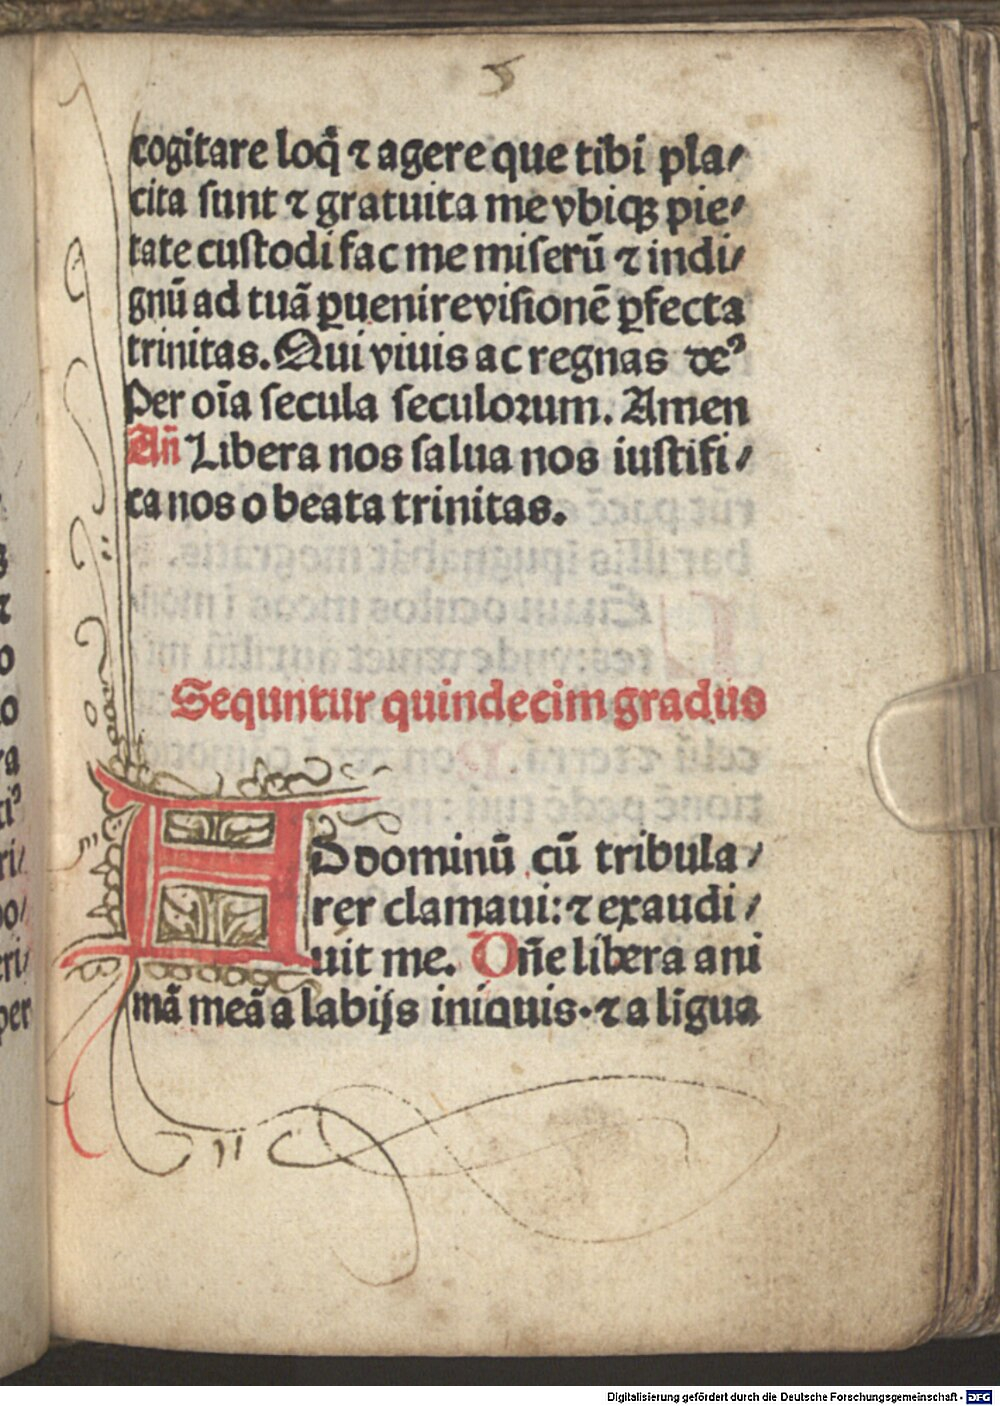 5
cogitare loq̄ ⁊ agere que tibi pla⸗
cita ſunt ⁊ gratuita me vbiqꝫ pie⸗
tate cuſtodi fac me miſerū ⁊ indi⸗
gnū ad tuā ꝑuenire viſionē ꝑfecta
trinitas. Qui viuis ac regnas de⁹
Per oīa ſecula ſeculoꝛum. Amen
Añ Libera nos ſalua nos iuſtifi⸗
ca nos o beata trinitas.
Sequntur quindecim gradus
AD dominū cū tribula⸗
rer clamaui: ⁊ exaudi⸗
uit me. Dñe libera ani
mā meā a labijs iniquis. ⁊ a līgua
Digitalisierung gefördert durch die Deutsche Forschungsgemeinschaft - DFG